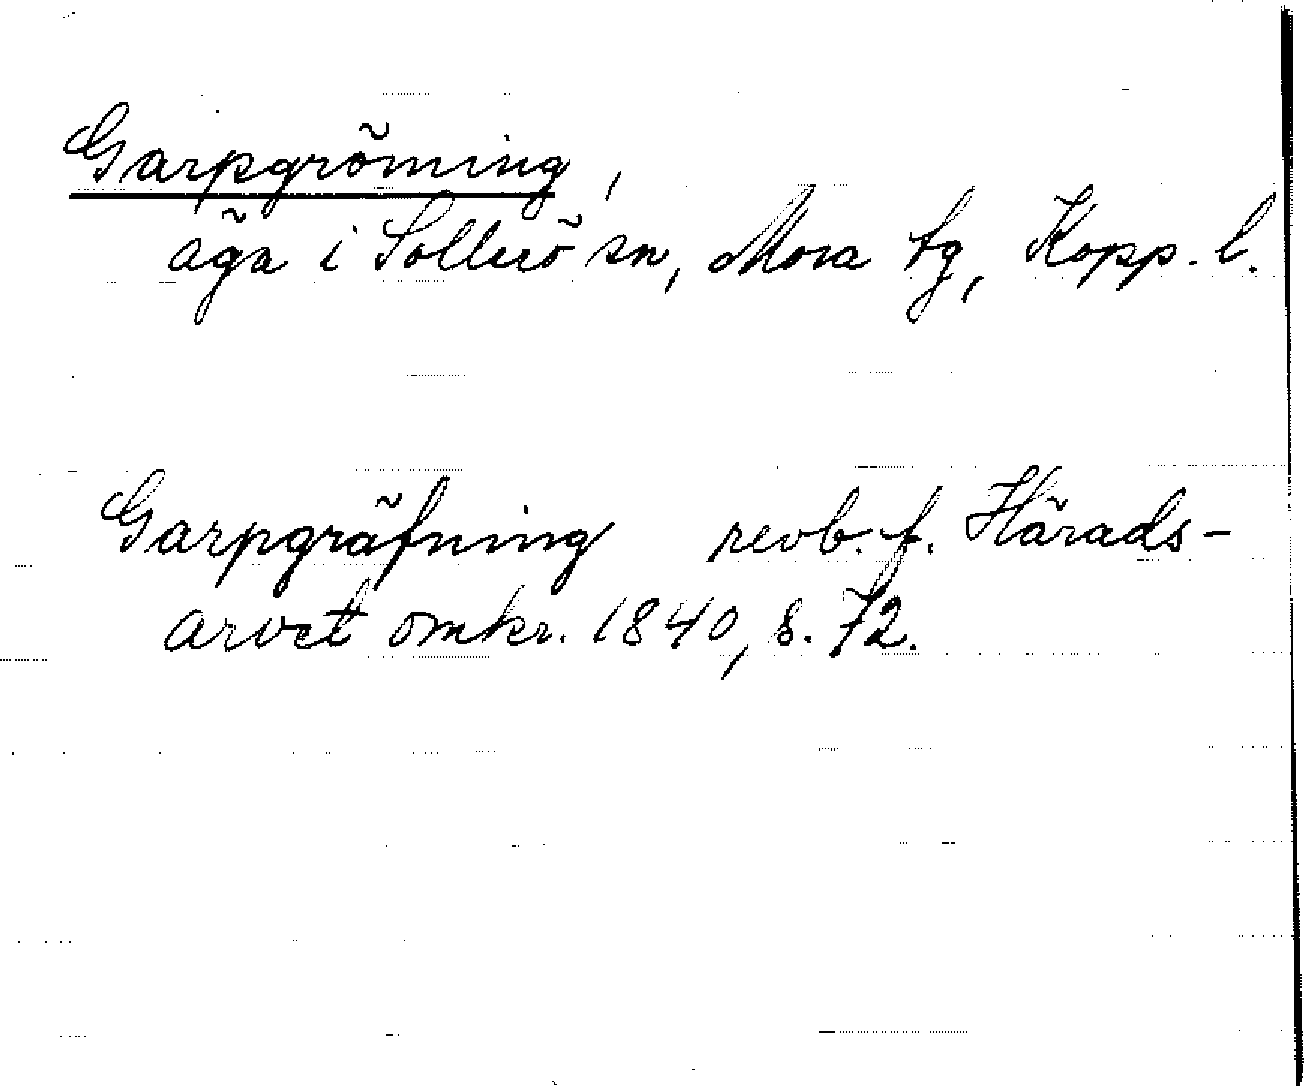 Garpgröming,
äga i Sollerö sn, Mora tg, Kopp. l.
Garpgräfning revb. f. Härads-
arvet omkr. 1840, s. 72.